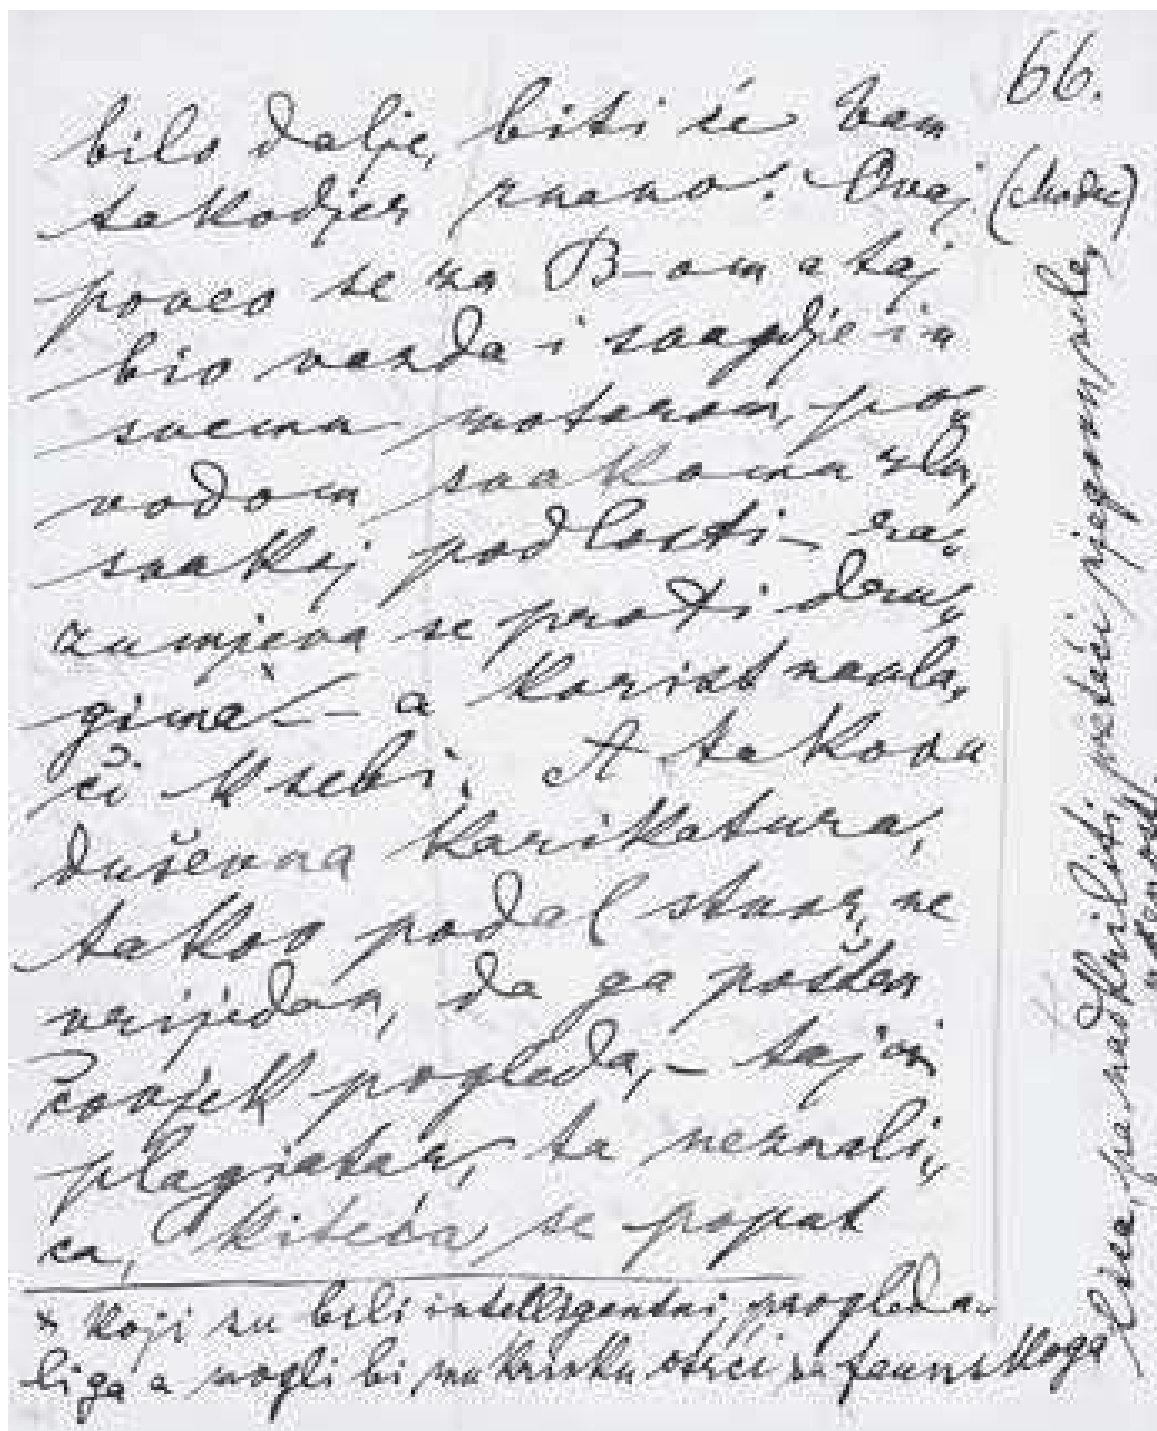 66.
bilo dalje, biti će Vam
takodjer znano. Ovaj
poveo se za B-om a taj
bio vazda i svagdje in
svema motorom, po-
vodom svakoma zlu,
svakoj podlosti – ra-
zumjeva se proti dru-
gima – a korist navla-
či k sebi. A takova
duševna karikatura,
takov podal stvor, ne
vrijedan, da ga pošten
čovjek pogleda, – taj
plagiatar, ta neznali-
ca, kiteća se poput
* koji su bili inteligentni, progleda-
li ga a mogli bi mu krinku strići sa faunskoga